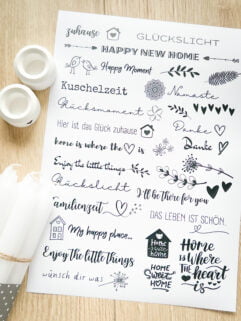 zuhause
GLÜCKSLICHT
HAPPY NEW HOME
Happy Moment
Kuschelzeit
Namaste
Glücksmoment
Danke
Hier ist das Glück zuhause
Danke
home is where the is
Enjoy the little things
Glückslicht
I'll be there for you
Familienzeit
DAS LEBEN IST SCHÖN.
My happy place...
Home
sweet
home
Home
is WHERE
THE
heart
is
Enjoy the little things
HOME
SWEET
HOME
wünsch dir was